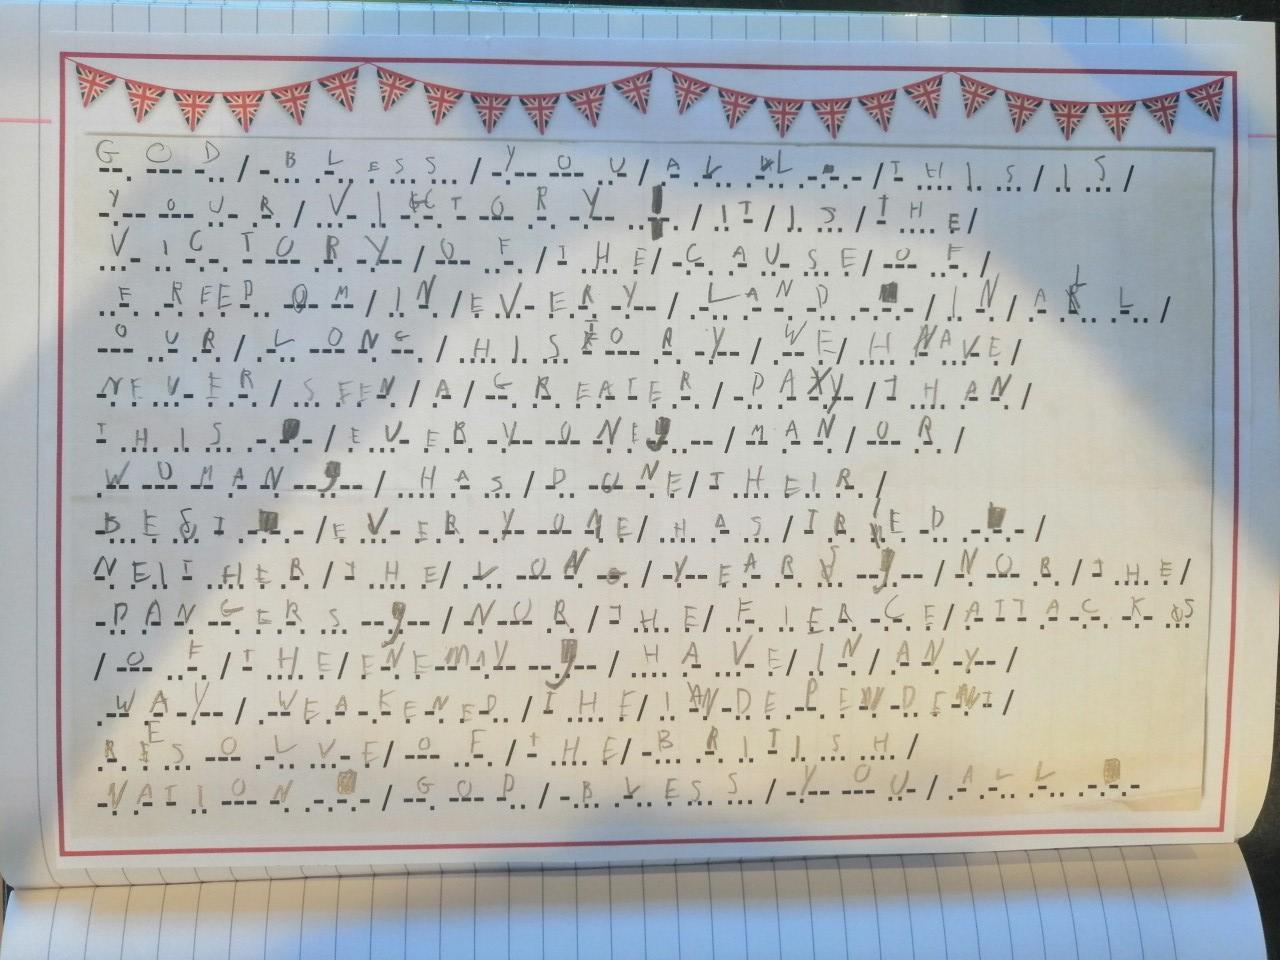 GOD / BLESS / YOU / ALL . / THIS / IS /
YOUR / VICTORY ! / IT / IS / THE /
VICTORY / OF / THE / CAUSE / OF /
FREEDOM / IN / EVERY / LAND . / IN / ALL /
OUR / LONG / HISTORY / WE / HAVE /
NEVER / SEEN / A / GREATER / DAY / THAN /
THIS . / EVERYONE , / MAN / OR /
WOMAN , / HAS / DONE / THEIR /
BEST . / EVERYONE / HAS / TRIED . /
NEITHER / THE / LONG / YEARS , / NOR / THE /
DANGERS , / NOR / THE / FIERCE / ATTACKS
/ OF / THE / ENEMY , / HAVE / IN / ANY /
WAY / WEAKENED / THE / INDEPENDENT /
RESOLVE / OF / THE / BRITISH /
NATION . / GOD / BLESS / YOU / ALL .